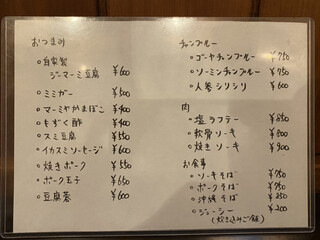 おつまみ
○自家製
ジーマーミ豆腐 ¥600
○ミミガー ¥500
○マーミヤかまぼこ ¥400
○もずく酢 ¥400
○スミ豆腐 ¥550
○イカスミソーセージ ¥600
○焼きポーク ¥550
○ポーク玉子 ¥650
○豆腐よう ¥600
チャンプルー
○ゴーヤチャンプルー ¥750
○ソーミンチャンプルー ¥750
○人参シリシリ ¥600
肉
○塩ラフテー ¥850
○軟骨ソーキ ¥800
○焼きソーキ ¥900
お食事
○ソーキそば ¥750
○ポークそば ¥750
○沖縄そば ¥350
○ジューシー ¥200
(炊き込みご飯)